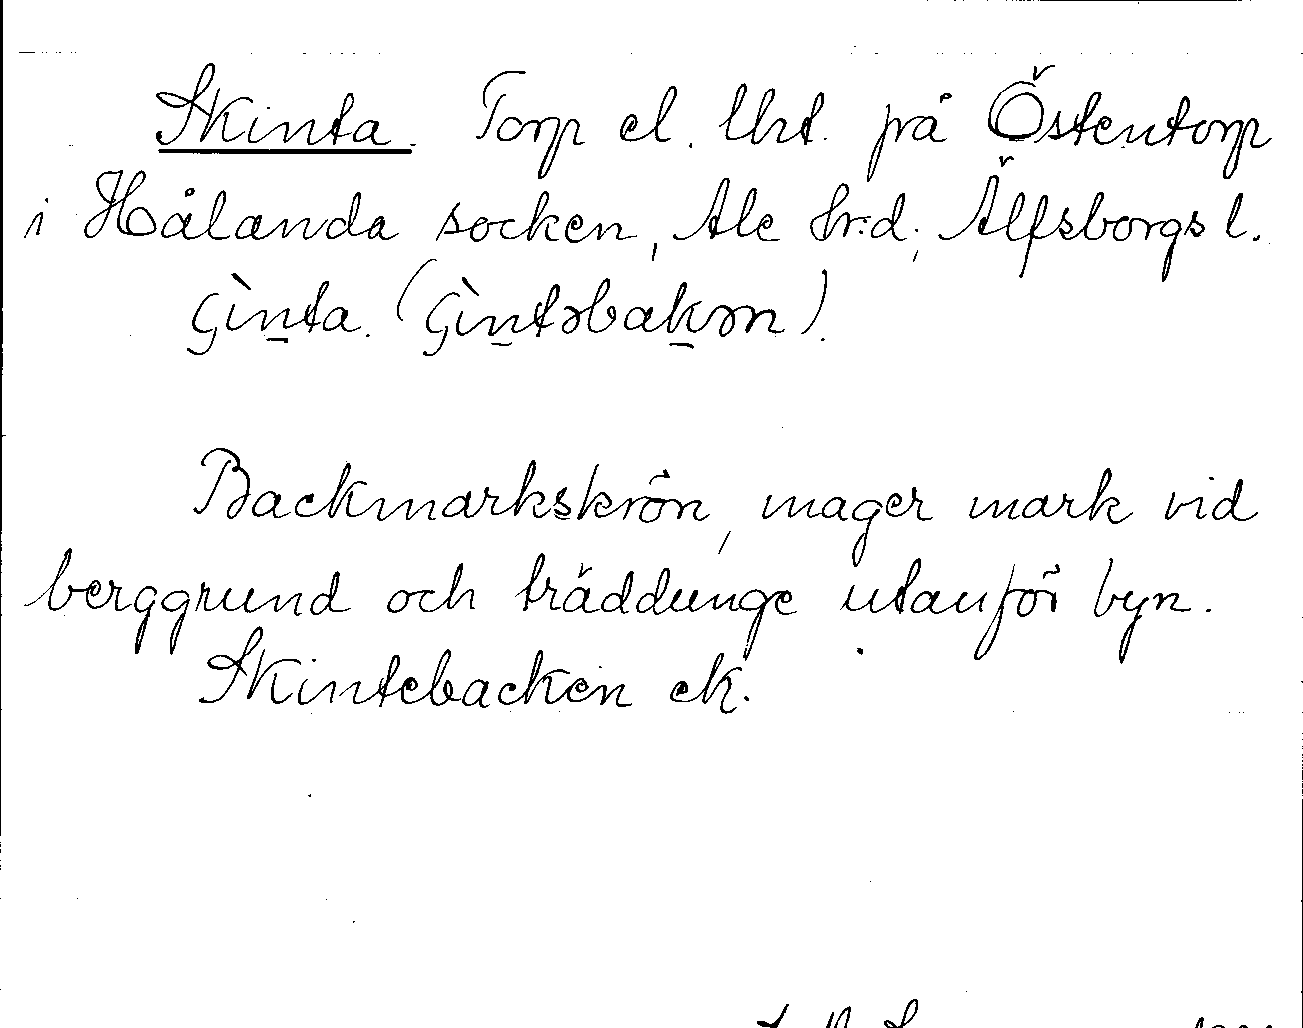 Skinta. Torp el. lht. på Östentorp
i Hålanda socken, Ale hrd; Älfsborgs l.
Gìnta. (Gìntəbakən).
Backmarkskrön, mager mark vid
berggrund och träddunge utanför byn.
Skintebacken ek.